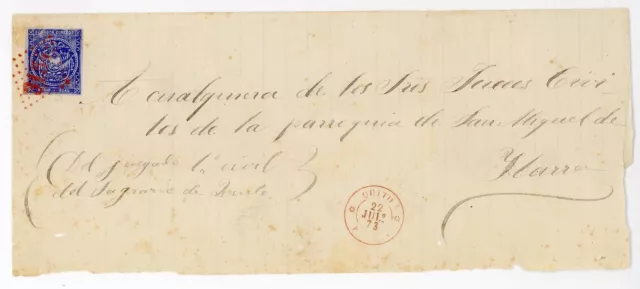 A cualquiera de los Srs Jueces Civi-
les de la parroquia de San Miguel de
Ybarra
(Del juzgado 1º civil
del Sagrario de Quito)
QUITO
22
JUL
73